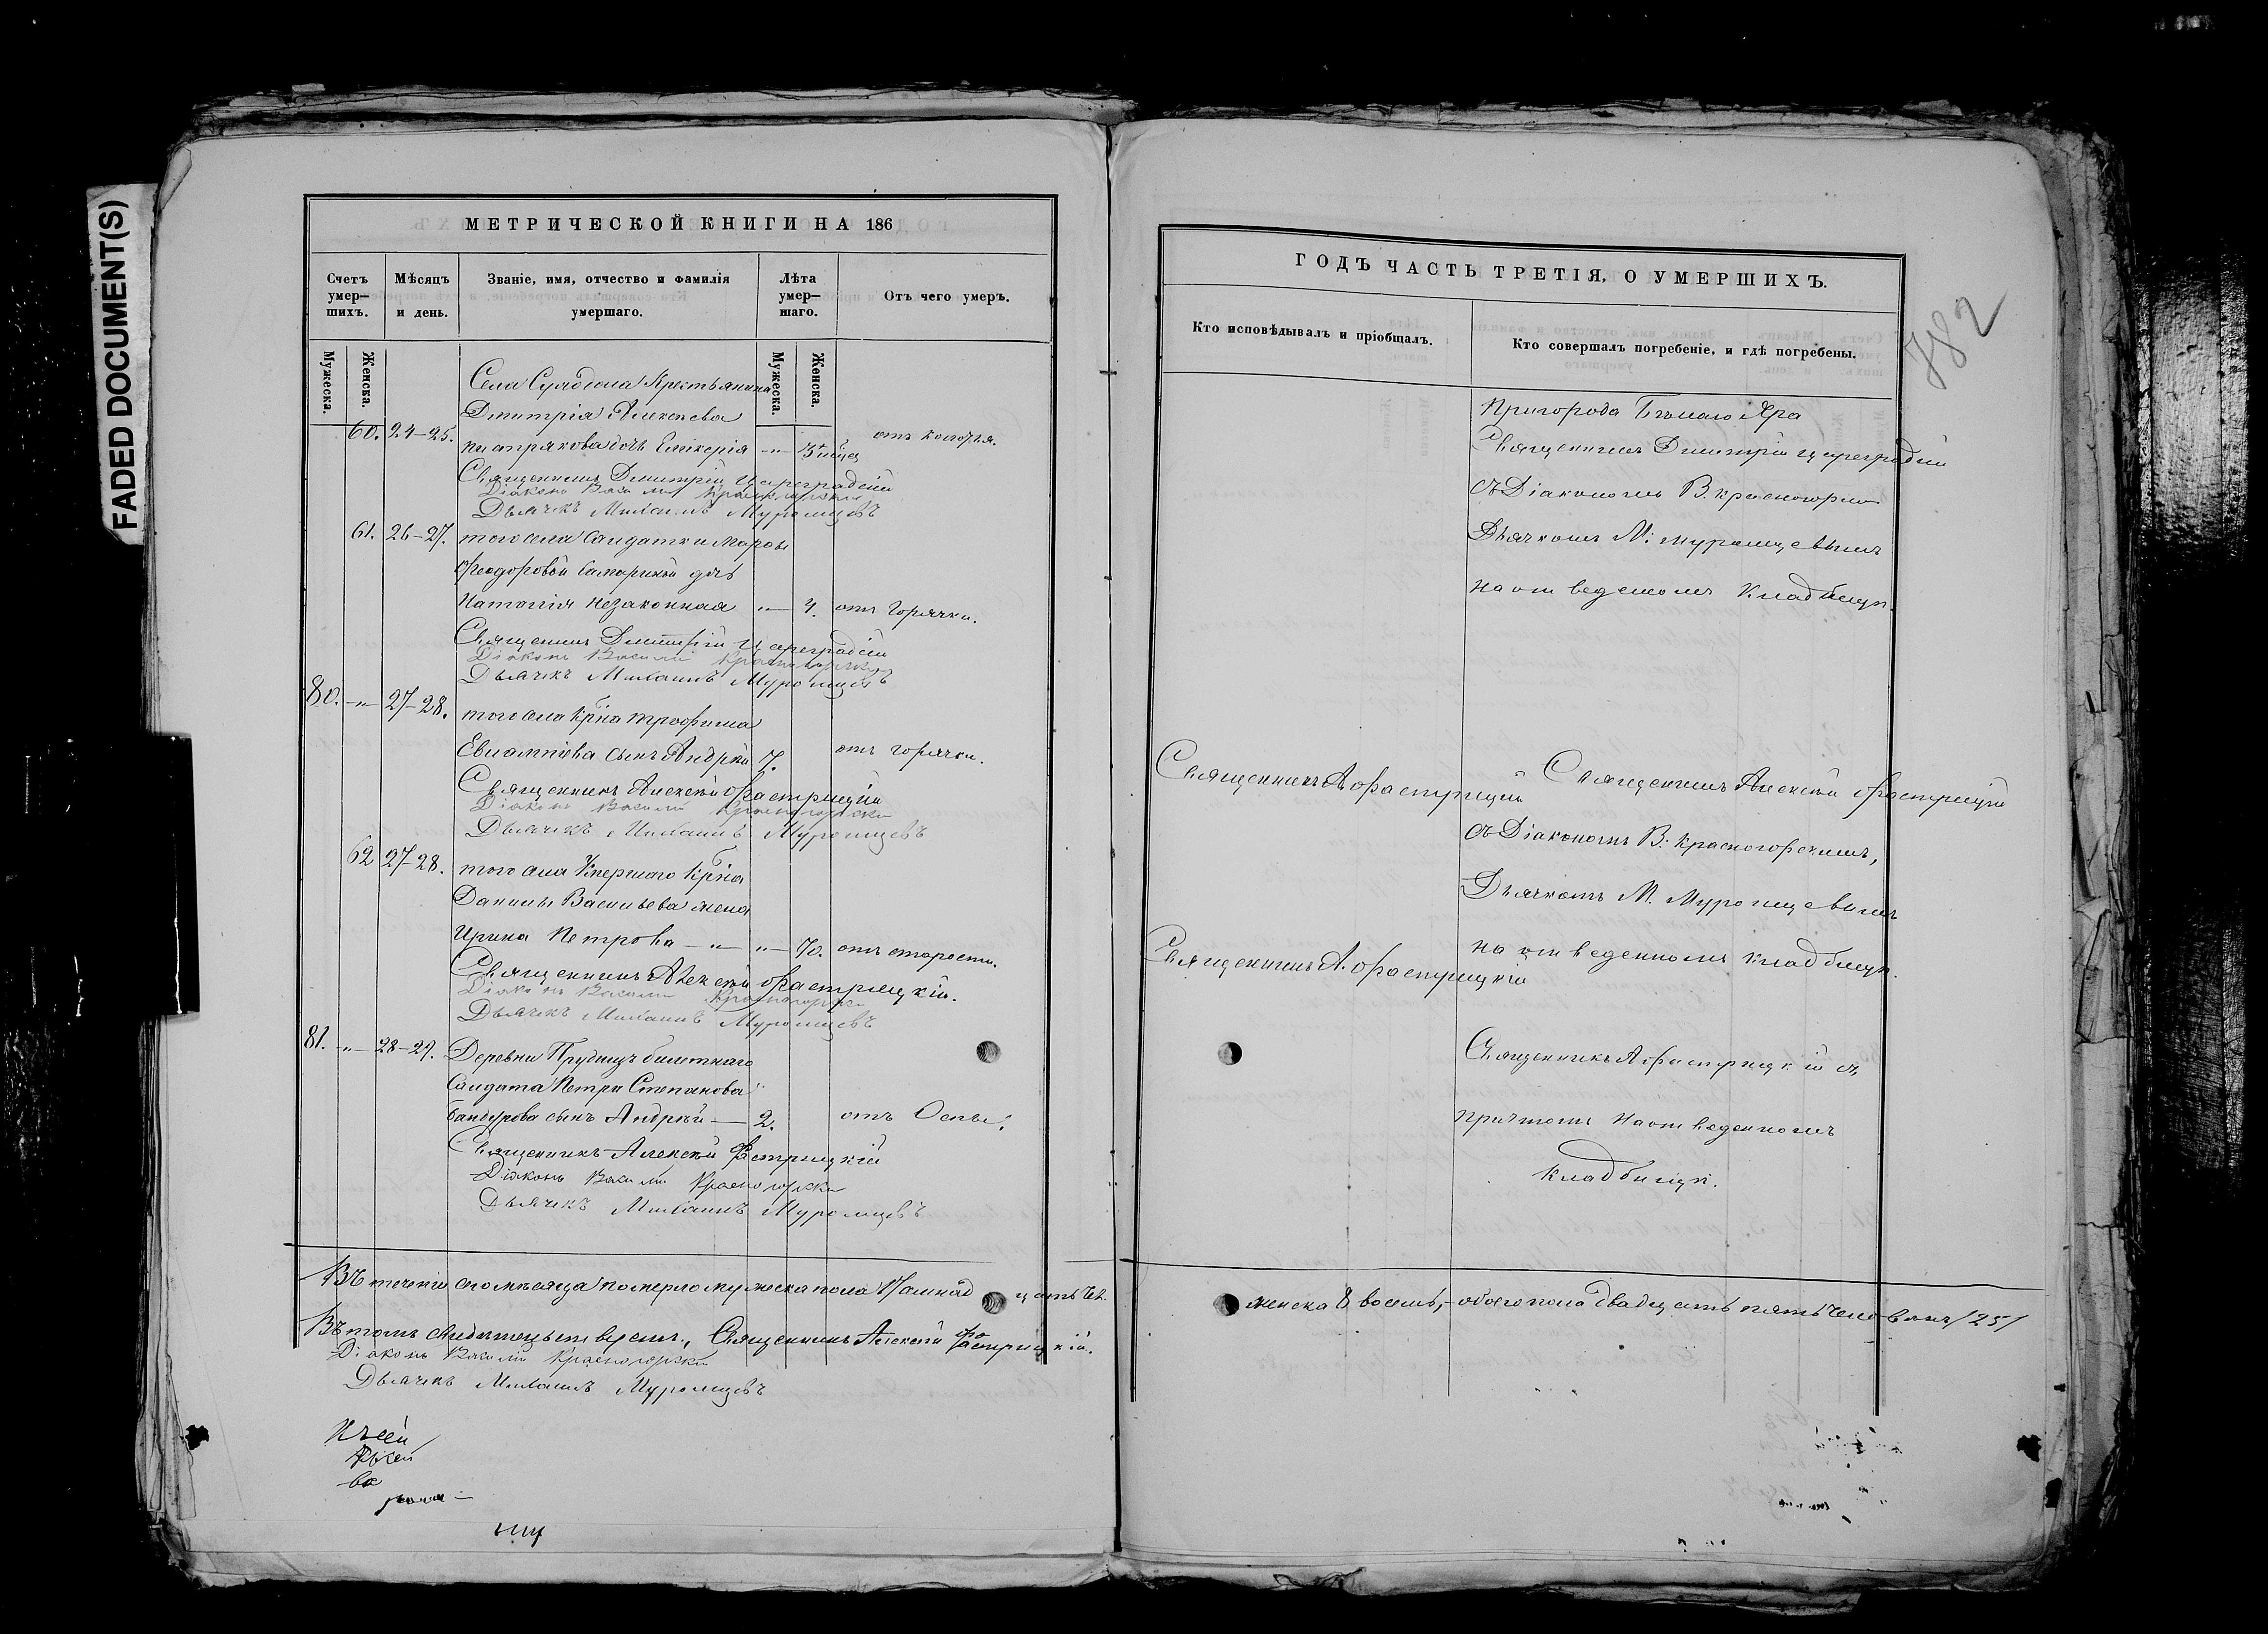 FADED DOCUMENT(S)
МЕТРИЧЕСКОЙ КНИГИ НА 186
Счетъ умер— шихъ.
Мѣсяцъ и день.
Званіе, имя, отчество и фамилія умершаго.
Лѣта умер— шаго.
Отъ чего умеръ.
Мужеска.
Женска.
Мужеска.
Женска.
Села Крестьянина
Дмитрія Алексѣева
60. 24–25. дочь Гликерія —"— отъ
Священникъ Димитрій Цареградскій
Діаконъ Василій Красногорскій
Дьячекъ Михаилъ Муромцевъ
61. 26–27. того села Солдатки Марѳы
Ѳеодоровой дочь
Наталія незаконная "— 4. отъ Горячки.
Священникъ Димитрій Цареградскій
Діаконъ Василій Красногорскій
Дьячекъ Михаилъ Муромцевъ
80. —"— 27–28. того села Кр̃на Трофима
Евлампіева сынъ Андрей 7. отъ горячки.
Священникъ Алексѣй Фастрицкій
Діаконъ Василій Красногорскій
Дьячекъ Михаилъ Муромцевъ
62 27–28. того села Кр̃на
Данилы Васильева жена
Ирина Петрова —"— "— 70. отъ старости.
Священникъ Алексѣй Фастрицкій.
Діаконъ Василій Красногорскій
Дьячекъ Михаилъ Муромцевъ
81. —"— 28–29. Деревни Прудищъ билетнаго
Солдата Петра Степанова
сынъ Андрей — 2. отъ Оспы.
Священникъ Алексѣй Фастрицкій
Діаконъ Василій Красногорскій
Дьячекъ Михаилъ Муромцевъ
Въ теченіи сего мѣсяца померло мужеска пола 17 цать чел.
Въ томъ свидѣтельствуемъ, Священникъ Алексѣй Фастрицкій.
Діаконъ Василій Красногорскій
Дьячекъ Михаилъ Муромцевъ
ГОДЪ ЧАСТЬ ТРЕТІЯ, О УМЕРШИХЪ.
782
Кто исповѣдывалъ и пріобщалъ.
Кто совершалъ погребеніе, и гдѣ погребены.
Пригорода Бѣлаго Яра
Священникъ Димитрій Цареградскій
съ Діакономъ В. Красногорскимъ
Дьячкомъ М. Муромцевымъ
на отведенномъ Кладбищѣ.
Священникъ А. Фастрицкій
Священникъ Алексѣй Фастрицкій
съ Діакономъ В. Красногорскимъ,
Дьячкомъ М. Муромцевымъ
на отведенномъ кладбищѣ.
Священникъ А. Фастрицкій
Священникъ А. Фастрицкій съ
причтомъ на отведенномъ
кладбищѣ.
женска 8 восемь, – обоего пола двадцать пять человѣкъ /25/